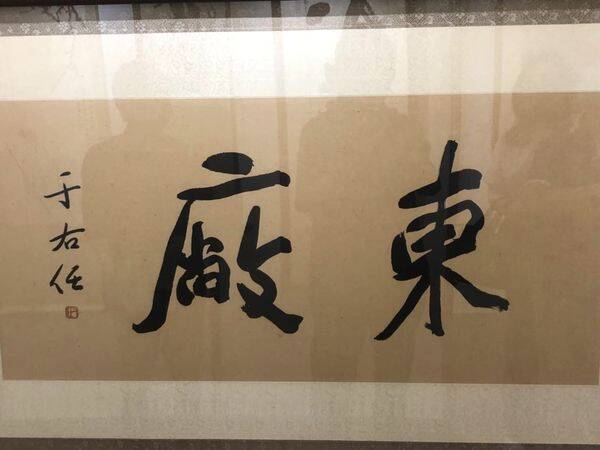 東廠
于右任